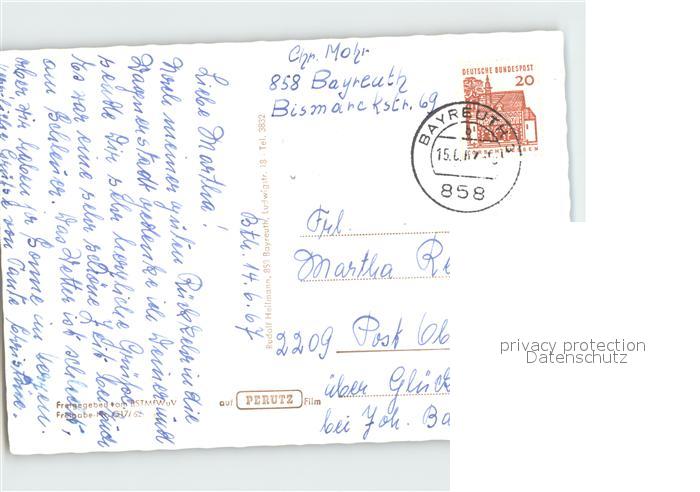 Chr. Mohr
858 Bayreuth
Bismarckstr. 69
DEUTSCHE BUNDESPOST
20
BAYREUTH
15.6.67
858
Bth. 14.6.67
Liebe Martha!
Nach meiner guten Rückkehr in die
Wagnerstadt gedenke ich Deiner und
sende Dir sehr herzliche Grüße.
Es war eine sehr schöne Zeit bei euch
am Bodensee. Das Wetter ist schlecht,
aber wir haben ja Sonne im Herzen.
Herzliche Grüße von Tante Christine.
Rudolf Heilmann, 851 Bayreuth, Ludwigstr. 18 - Tel. 3832
Frl.
Martha Re
2209 Post Ob
über Glück
bei Joh. Ba
Freigegeben vom BSTMfWuV
auf PERUTZ Film
privacy protection
Datenschutz